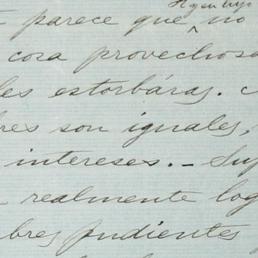 parece que no
cosa provechosa
les estorbáras.
res son iguales,
intereses. — Su
realmente log
bres pudientes